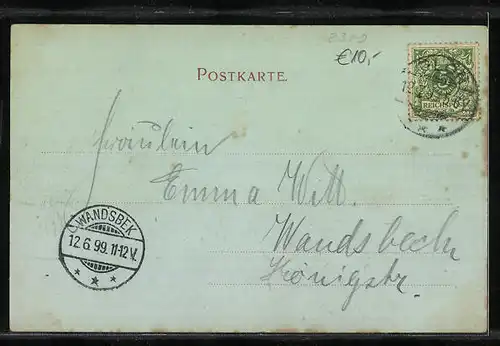 2309
€10,-
POSTKARTE.
5
REICHSPOST
Fräulein
Emma Witt.
WANDSBEK
12.6.99.11-12V.
Wandsbeck
Königstr.